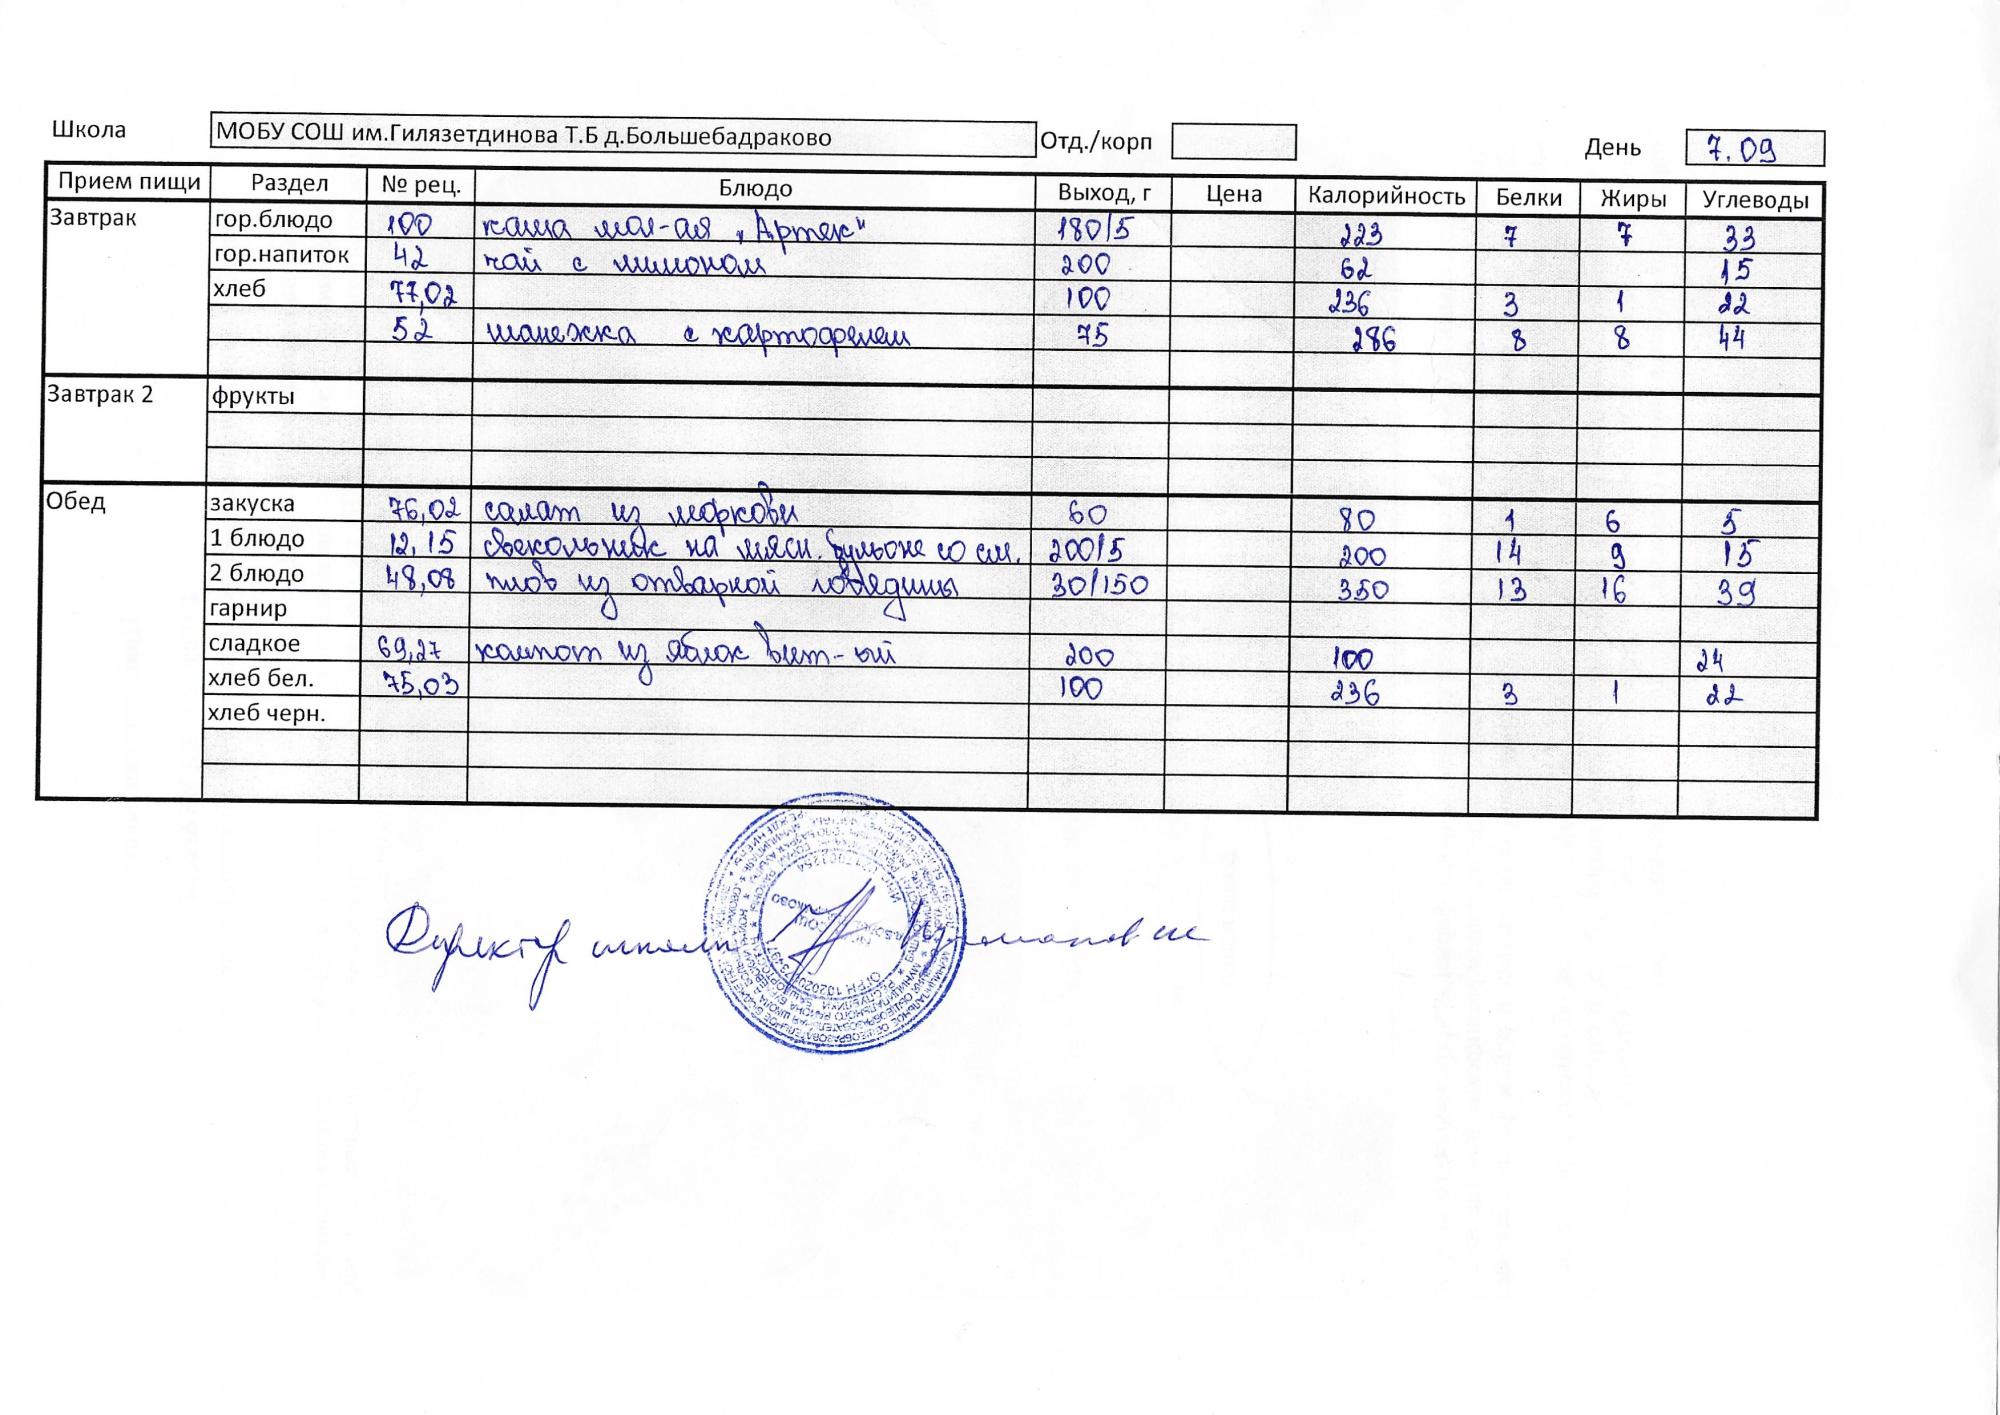 Школа МОБУ СОШ им.Гилязетдинова Т.Б д.Большебадраково Отд./корп День 7.09
Прием пищи Раздел № рец. Блюдо Выход, г Цена Калорийность Белки Жиры Углеводы
Завтрак гор.блюдо 100 каша мол-ая "Артек" 180/5 223 7 7 33
гор.напиток 42 чай с лимоном 200 62 15
хлеб 77,02 100 236 3 1 22
52 шанежка с картофелем 75 286 8 8 44
Завтрак 2 фрукты
Обед закуска 76,02 салат из моркови 60 80 1 6 5
1 блюдо 12,15 свекольник на мясн. бульоне со см. 200/5 200 14 9 15
2 блюдо 48,08 плов из отварной говядины 30/150 350 13 16 39
гарнир
сладкое 69,27 компот из яблок вит-ый 200 100 24
хлеб бел. 75,03 100 236 3 1 22
хлеб черн.
Директор школы